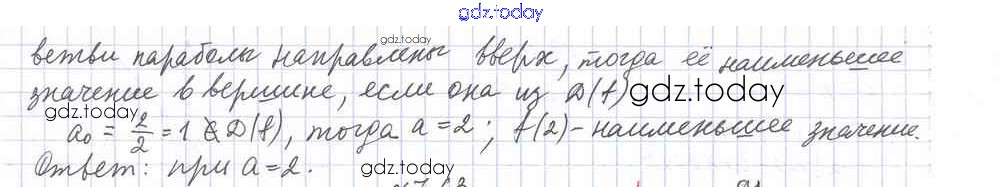 gdz.today
ветви параболы направлены вверх, тогда её наименьшее
gdz.today
значение в вершине, если она из D(f)
gdz.today
gdz.today
a₀ = 2/2 = 1 ∉ D(f), тогда a = 2; f(2) - наименьшее значение.
Ответ: при a = 2.
gdz.today